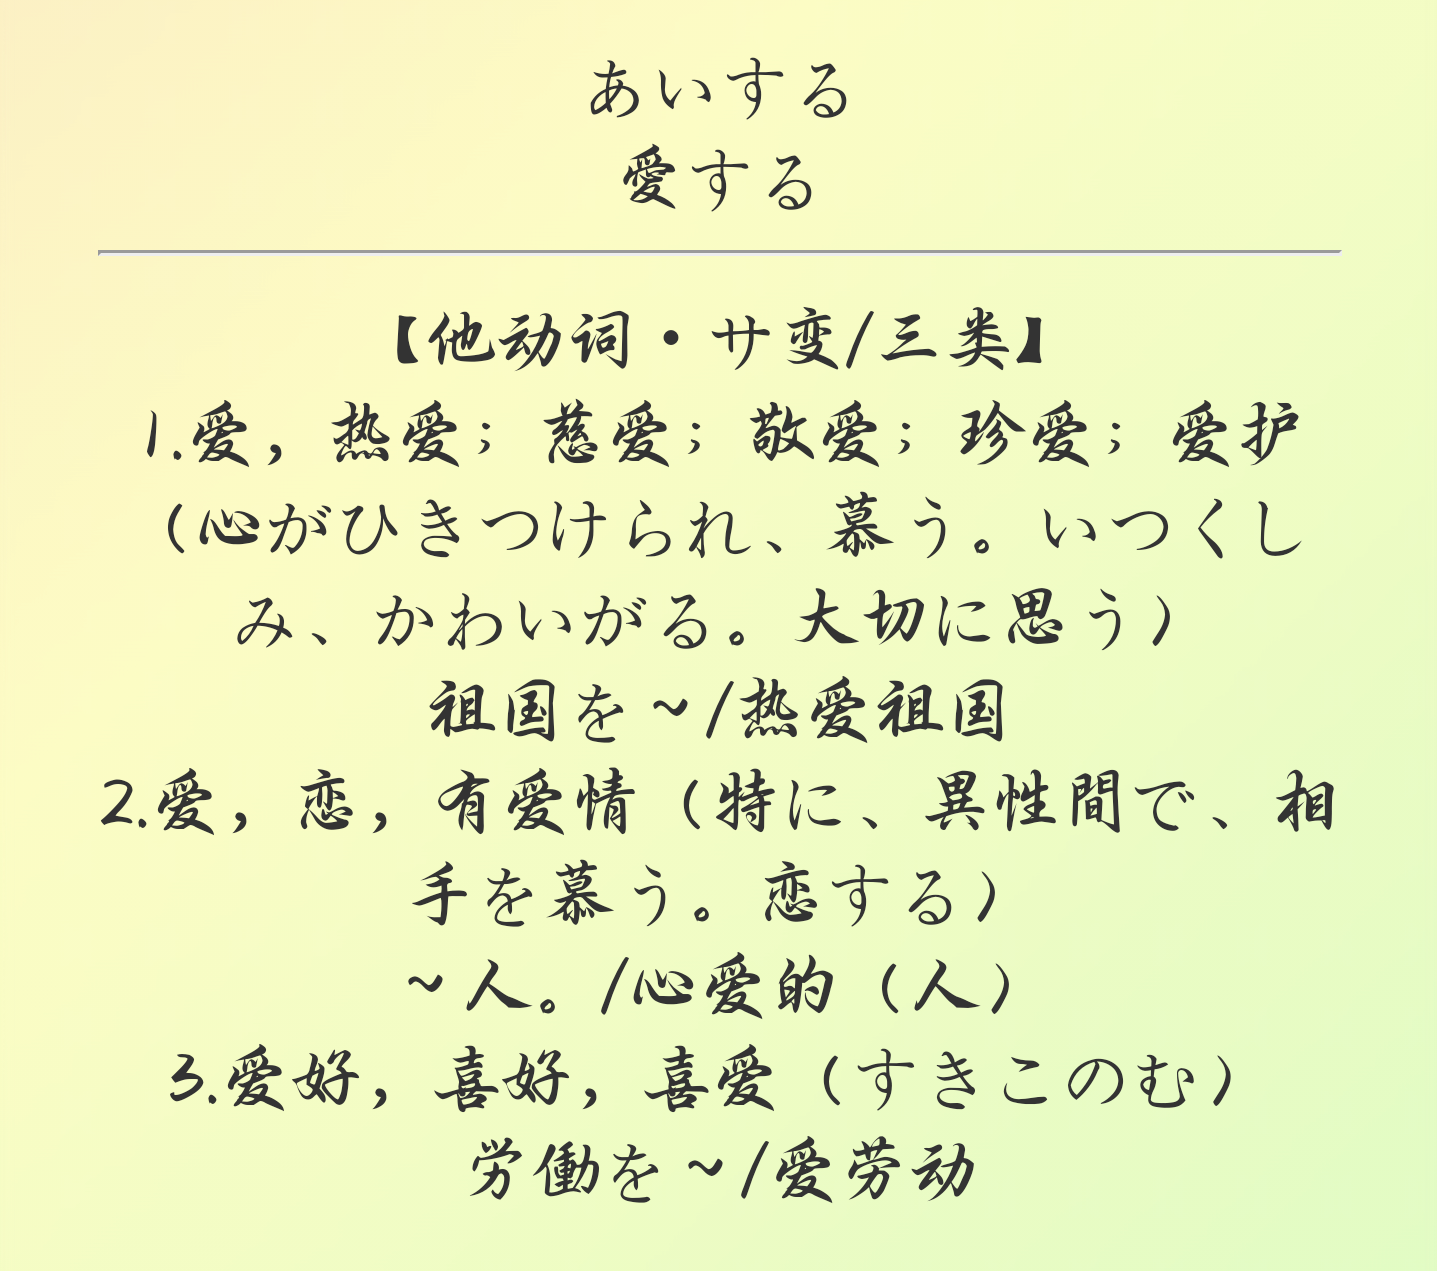 あいする
愛する
【他动词・サ变/三类】
1.爱，热爱；慈爱；敬爱；珍爱；爱护
（心がひきつけられ、慕う。いつくし
み、かわいがる。大切に思う）
祖国を～/热爱祖国
2.爱，恋，有爱情（特に、異性間で、相
手を慕う。恋する）
～人。/心爱的（人）
3.爱好，喜好，喜爱（すきこのむ）
労働を～/爱劳动